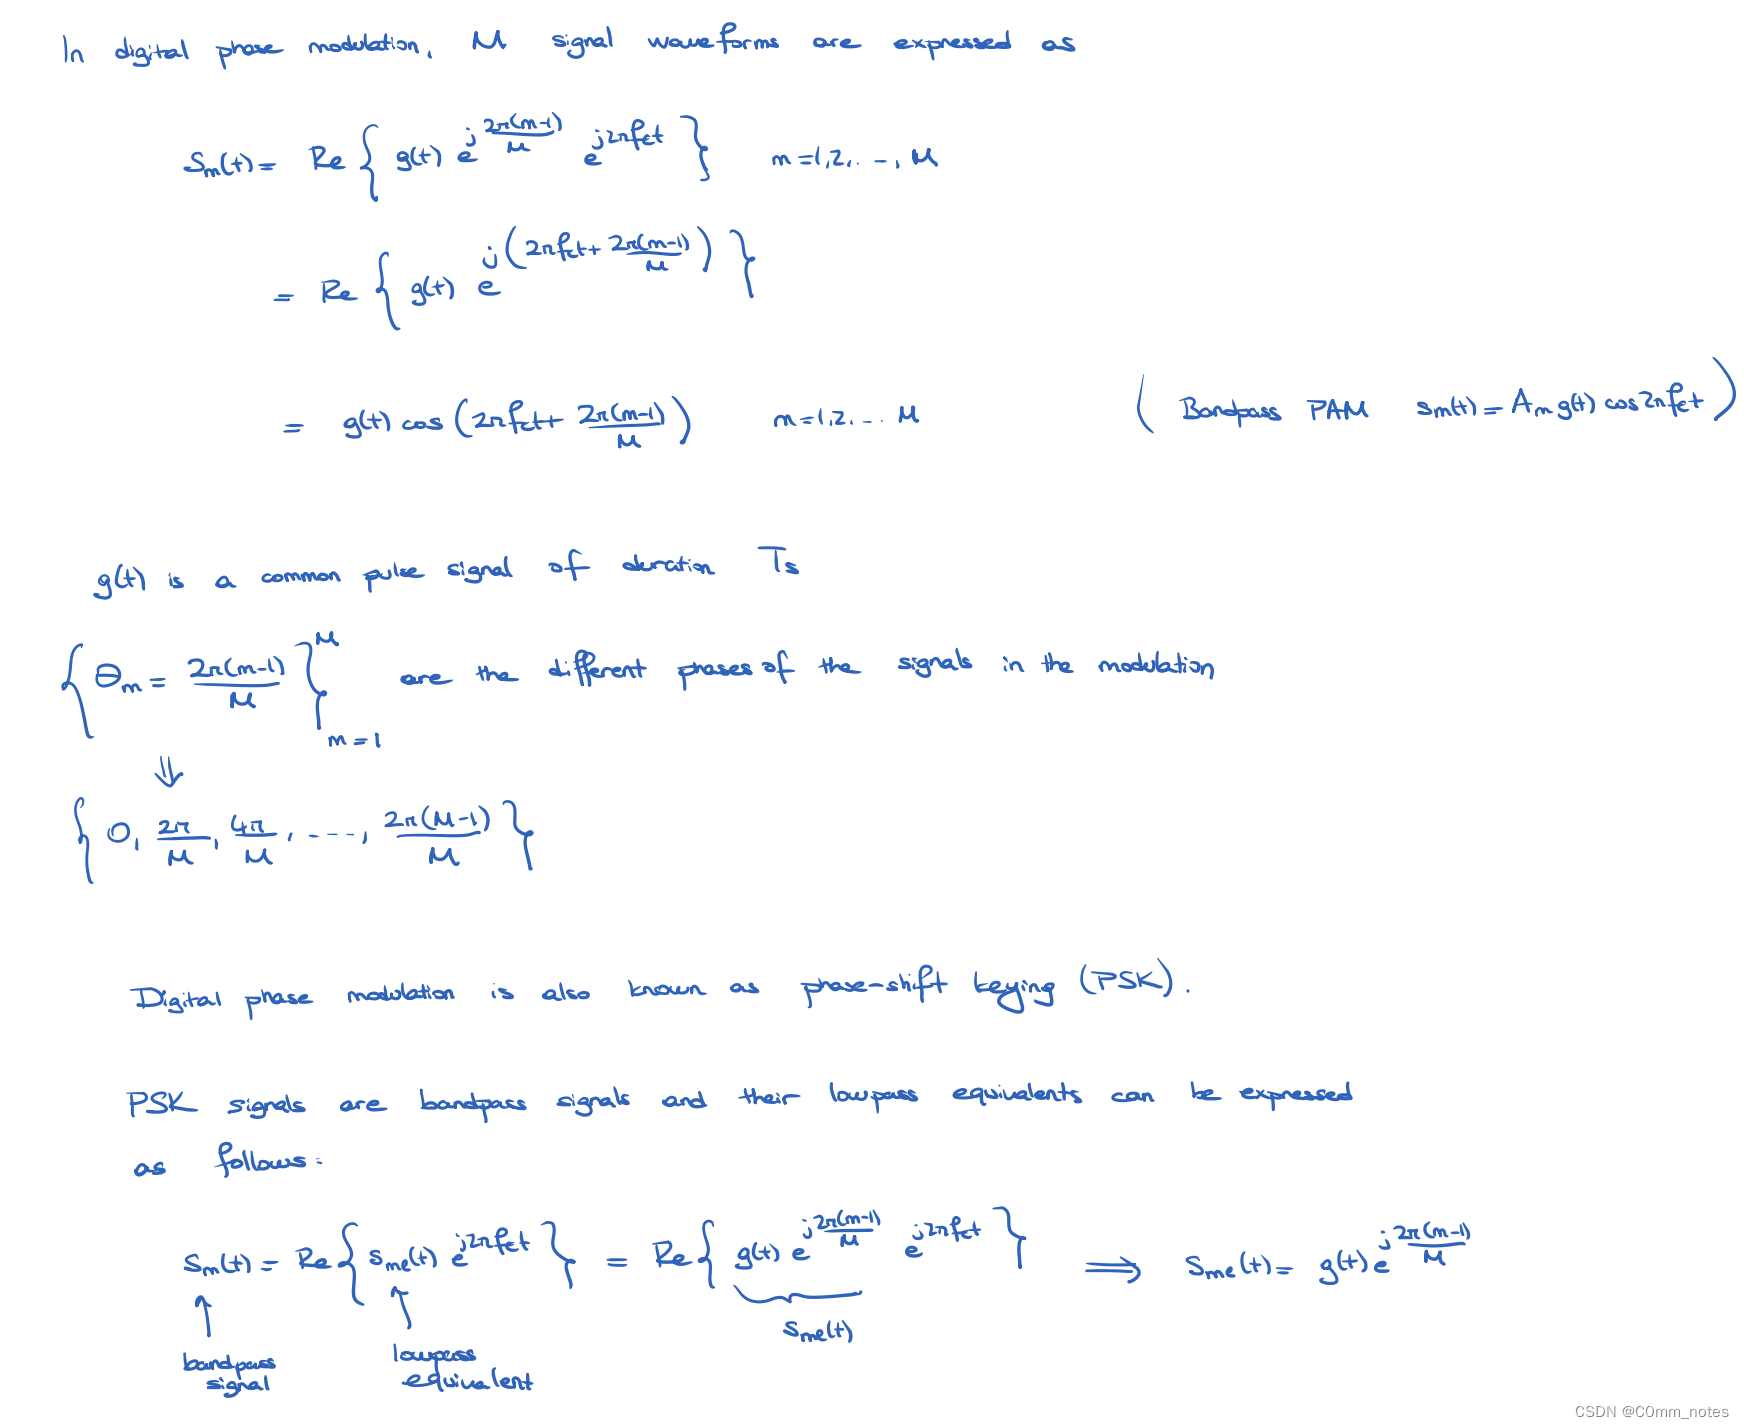 In digital phase modulation, M signal waveforms are expressed as
Sm(t) = Re { g(t) e^{j 2π(m-1)/M} e^{j2πfct} } m=1,2,..., M
= Re { g(t) e^{j(2πfct + 2π(m-1)/M)} }
= g(t) cos (2πfct + 2π(m-1)/M) m=1,2,... M ( Bandpass PAM sm(t) = Am g(t) cos2πfct )
g(t) is a common pulse signal of duration Ts
{ θm = 2π(m-1)/M }_{m=1}^{M} are the different phases of the signals in the modulation
⇓
{ 0, 2π/M, 4π/M, ...., 2π(M-1)/M }
Digital phase modulation is also known as phase-shift keying (PSK).
PSK signals are bandpass signals and their lowpass equivalents can be expressed
as follows:
Sm(t) = Re { sme(t) e^{j2πfct} } = Re { g(t) e^{j 2π(m-1)/M} e^{j2πfct} } ⟹ Sme(t) = g(t) e^{j 2π(m-1)/M}
Sme(t)
bandpass signal
lowpass equivalent
CSDN @C0mm_notes